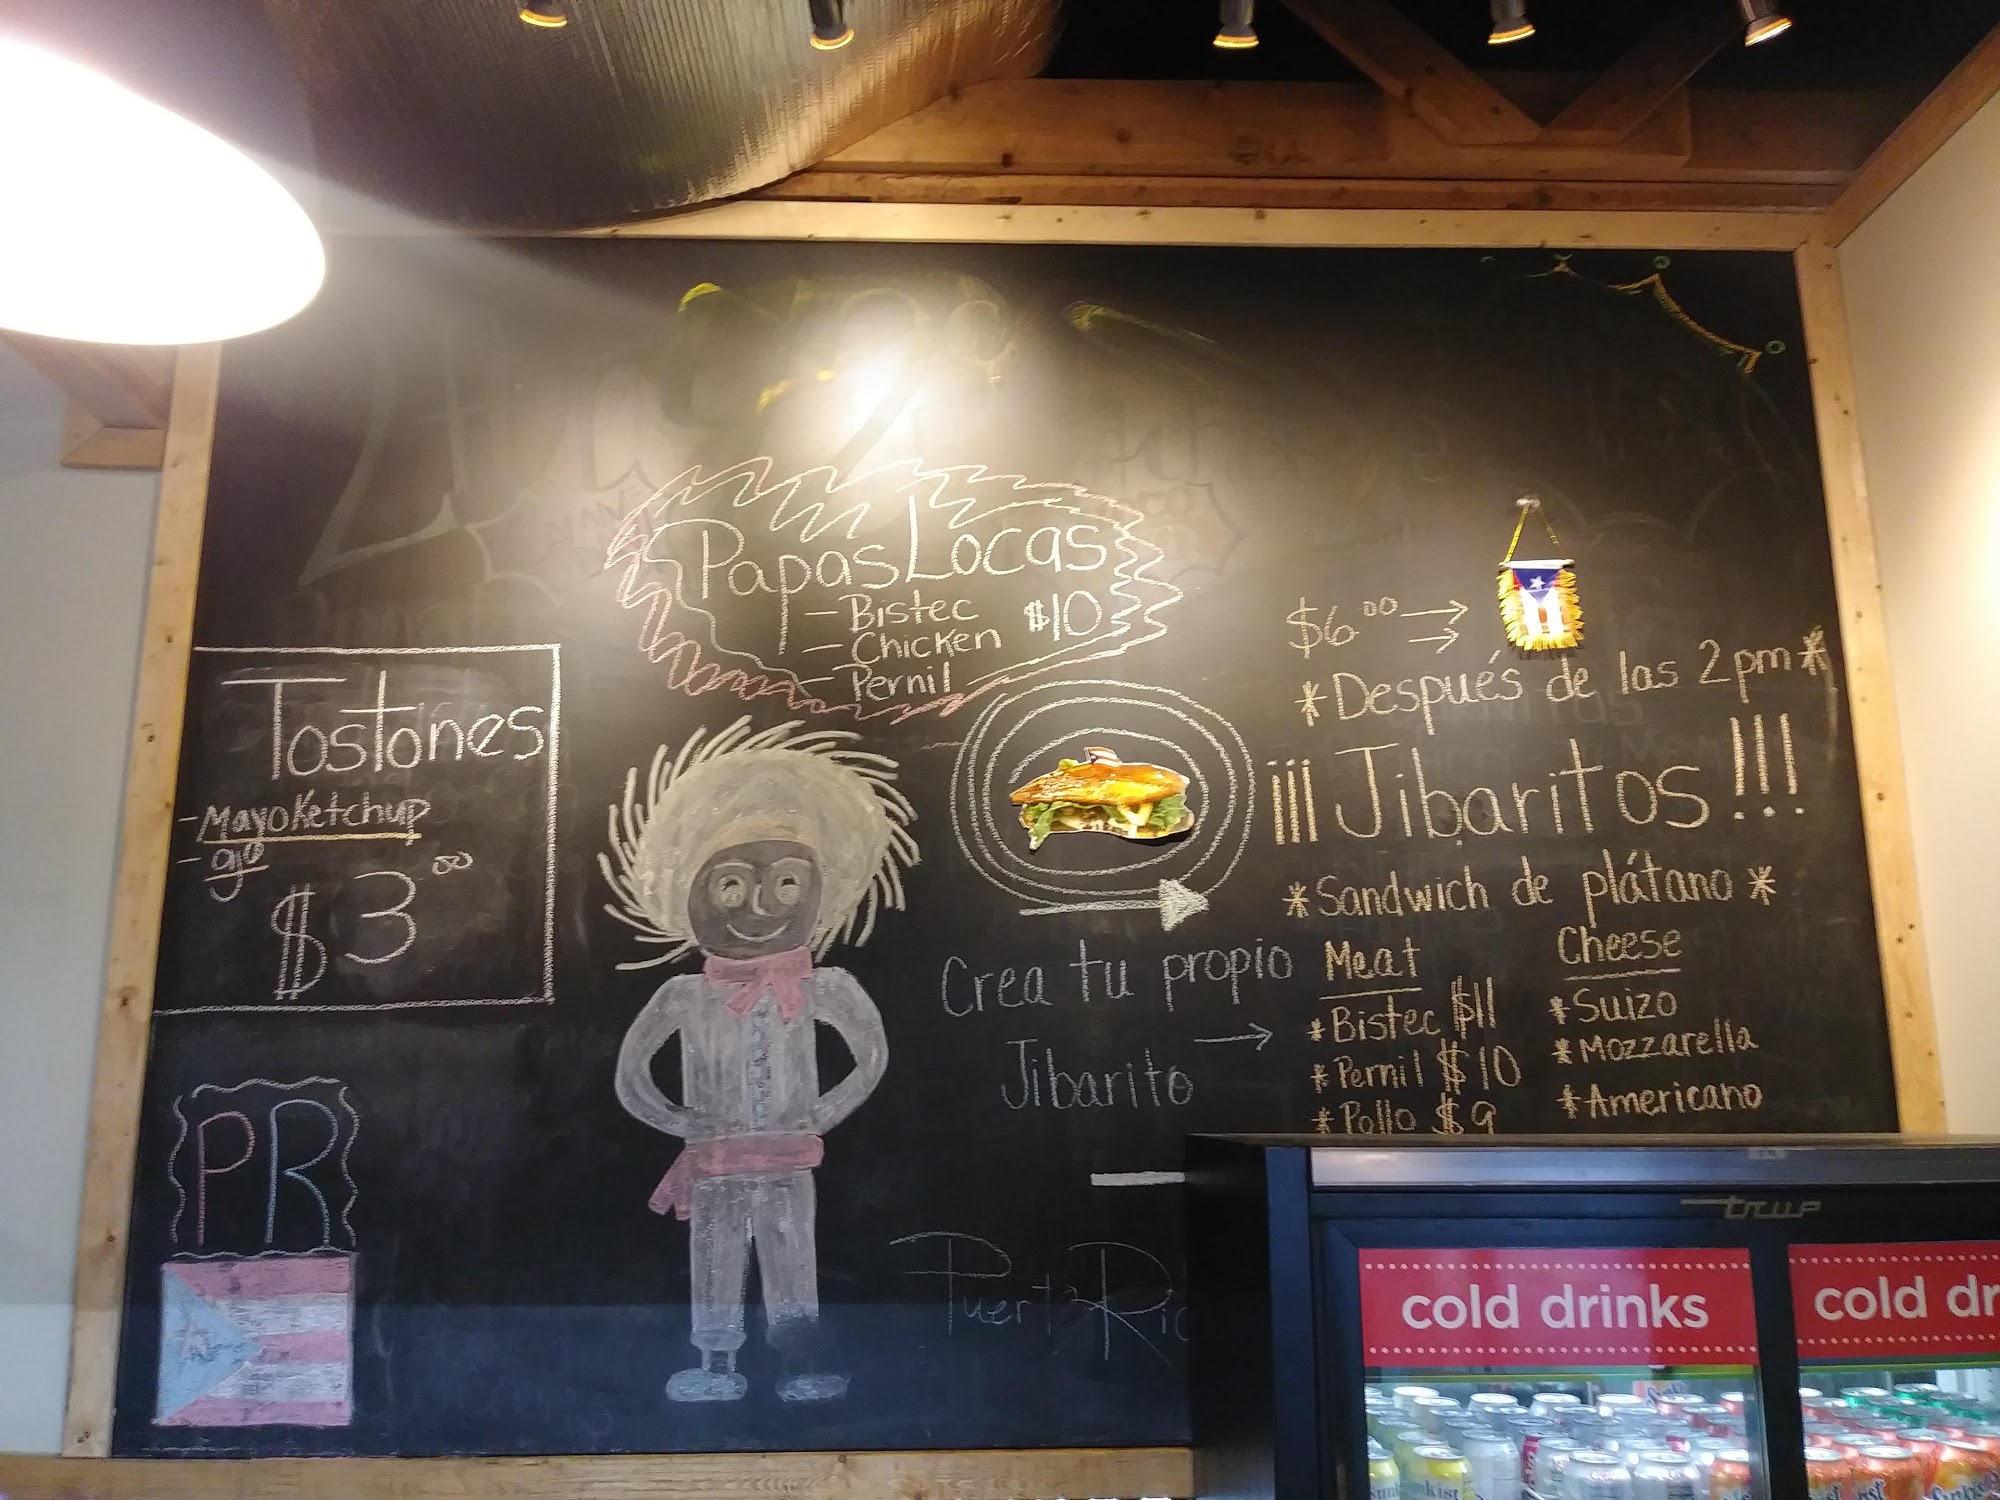 Papas Locas
- Bistec
- Chicken
- Pernil
$10
Tostones
- MayoKetchup
- ajo
$3.00
PR
$6.00
*Después de las 2pm*
¡¡¡Jibaritos!!!
*Sandwich de plátano*
Crea tu propio
Jibarito
Meat
*Bistec $11
*Pernil $10
*Pollo $9
Cheese
*Suizo
*Mozzarella
*Americano
Puerto Ric
true
cold drinks
cold dr